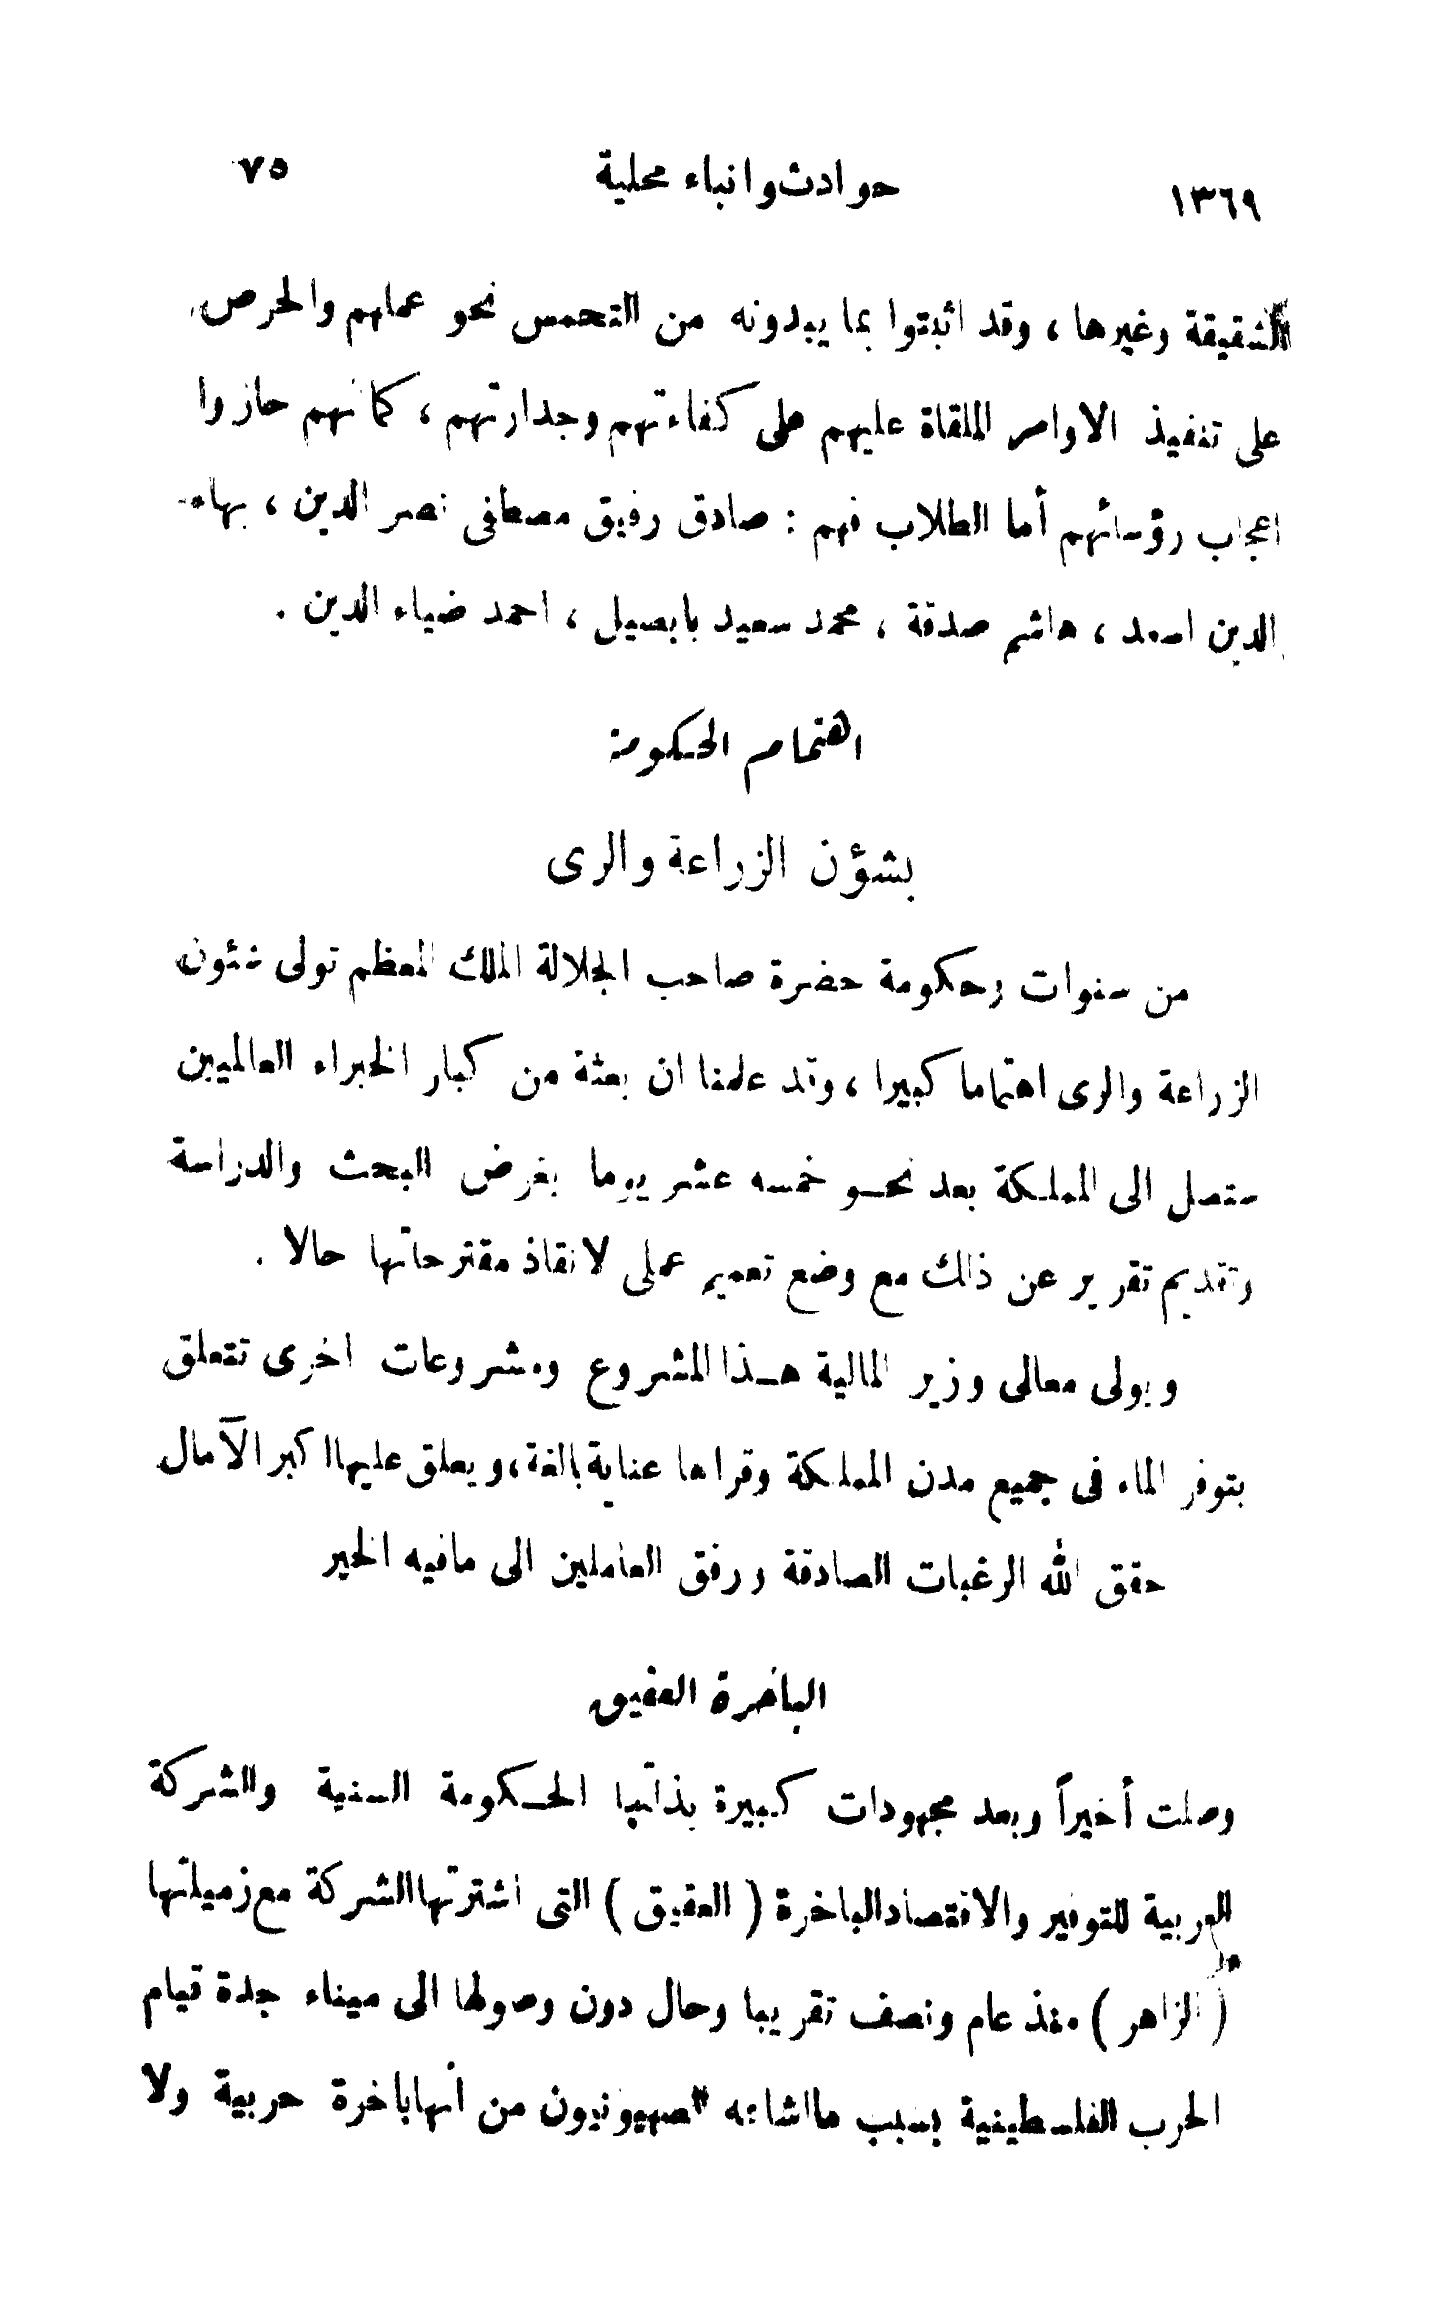 ١٣٦٩ حوادث وانباء محلية ٧٥
الشقيقة وغيرها ، وقد اثبتوا بما يبدونه من التحمس نحو عملهم والحرص
على تنفيذ الاوامر الملقاة عليهم على كفاءتهم وجدارتهم ، كما نهم حازوا
اعجاب رؤسائهم أما الطلاب فهم : صادق رفيق مصطفى نصر الدين ، بهاء
الدين اسعد ، هاشم صدقة ، محمد سعيد بابصيل ، احمد ضياء الدين .
اهتمام الحكومة
بشؤن الزراعة والرى
من سنوات وحكومة حضرة صاحب الجلالة الملك المعظم تولى شئون
الزراعة والرى اهتماما كبيرا ، وقد علمنا ان بعثة من كبار الخبراء العالميين
ستصل الى المملكة بعد نحو خمسه عشر يوما بغرض البحث والدراسة
وتقديم تقرير عن ذالك مع وضع تعميم عملى لانقاذ مقترحاتها حالا .
ويولى معالى وزير المالية هذا المشروع ومشروعات اخرى تتعلق
بتوفر الماء فى جميع مدن المملكة وقراها عناية بالغة ، ويعلق عليها اكبر الآمال
حقق الله الرغبات الصادقة ورفق العاملين الى مافيه الخير
الباخرة العقيق
وصلت أخيراً وبعد مجهودات كبيرة بذلتها الحكومة السنية والشركة
العربية للتوفير والاقتصاد الباخرة ( العقيق ) التى اشترتها الشركة مع زميلتها
( الزاهر ) منذ عام ونصف تقريبا وحال دون وصولها الى ميناء جدة قيام
الحرب الفلسطينية بسبب مااشاعه الصهيونيون من أنها باخرة حربية ولا